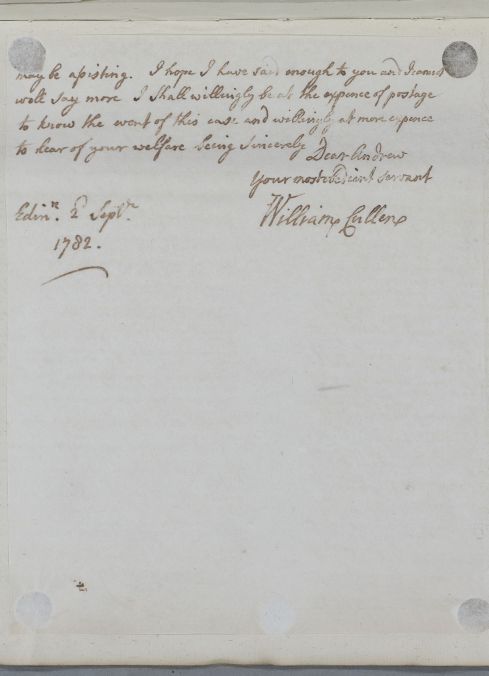 may be assisting. I hope I have said enough to you and I cannot
well say more I shall willingly be at the expence of postage
to know the event of this case and willingly at more expence
to hear of your welfare being Sincerely Dear Andrew
Your most obedient servant
William Cullen
Edinr. 2 Septr.
1782.